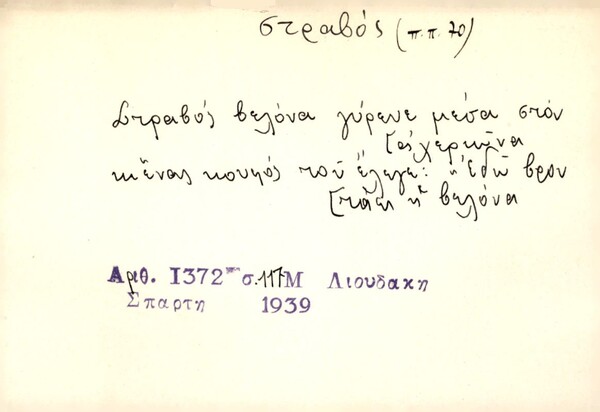 στραβός (π.π. 70)
Στραβός βελόνα γύρευε μέσα στόν
[ἀχερῶνα
κ' ἕνας κουφός τοῦ ἔλεγε: "ἐδῶ βρον
[τάει ἡ βελόνα
Αριθ. 1372 σ. 117 Μ Λιουδακη
Σπαρτη 1939